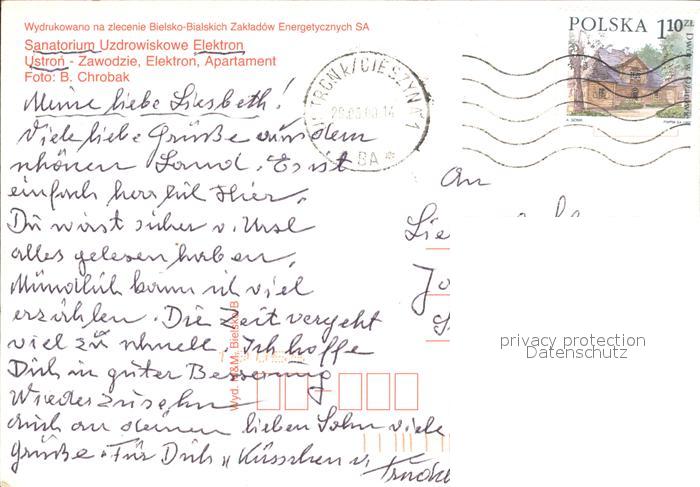 Wydrukowano na zlecenie Bielsko-Bialskich Zakładów Energetycznych SA
Sanatorium Uzdrowiskowe Elektron
Ustroń - Zawodzie, Elektron, Apartament
Foto: B. Chrobak
POLSKA 1,10 ZŁ
USTROŃ K/CIESZYNA 1
BA
Meine liebe Liesbeth!
Viele liebe Grüße aus dem
schönen Land. Es ist
einfach herrlich Hier,
Du wirst sicher v. Ursl
alles gelesen haben,
Mündlich kann ich viel
erzählen. Die Zeit vergeht
viel zu schnell. Ich hoffe
Dich in guter Besserung
Wiederzusehn
auch an deinen lieben Sohn viele
Grüße. Für Dich " Küsschen v.
An
Lie
Jo
Wyd. M&M, Bielsko-B
privacy protection
Datenschutz